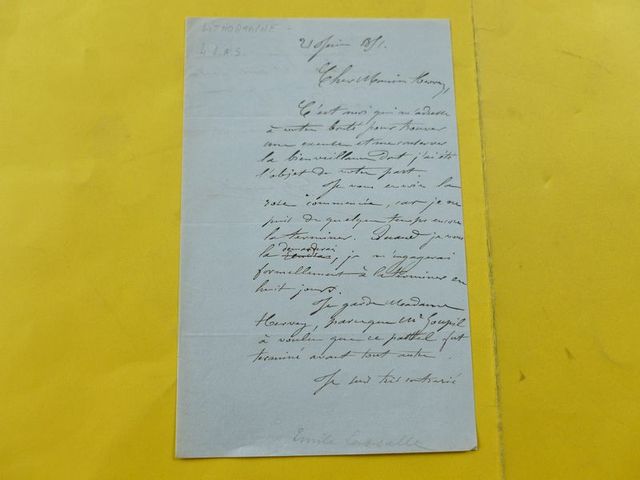 LITHOGRAPHE
L.A.S.
21 Juin 1851.
Cher Monsieur Hervey,
C'est moi qui m'adresse
à votre bonté pour trouver
une excuse et me conserver
la bienveillance dont j'ai été
l'objet de votre part
Je vous envoie la
rose commencée, car je ne
puis de quelque temps encore
la terminer. Quand je vous
la demanderai, je m'engagerai
formellement à la terminer en
huit jours.
Je garde Madame
Hervey, parceque Mr Goupil
à voulu que ce pastel fut
terminé avant tout autre.
Je suis très contrarié
Emile Lassalle